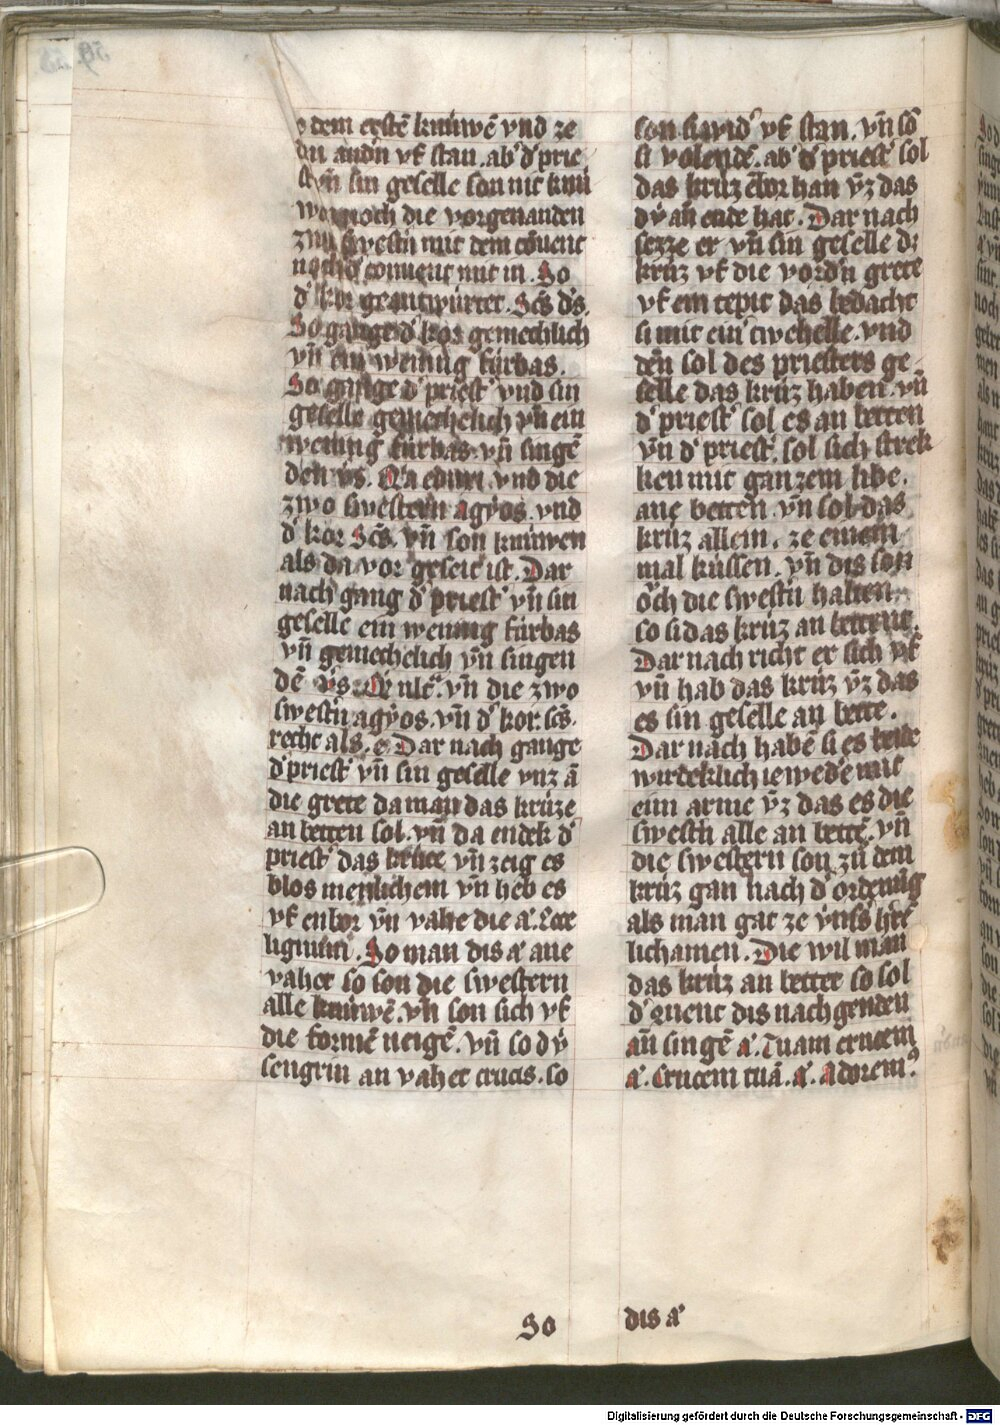 dem erstē knúwē vnd ze
dn andn vf stan. ab d' prie
st' vn̄ sin geselle son nit knú
wen noch die vorgenanden
zwu swestn mit dem cōuent
noch d' conuent mit in. So
d' kor geantwúrtet. Scs d's.
So gange d' kor gemechlich
vn̄ ein wening fúrbas.
So gange d' priest' vnd sin
geselle gemechelich vn̄ ein
wening fúrbas. vn̄ singē
den v̄s. Qa eduxi vnd die
zwo swestern agyos. vnd
d' kor Scs. vn̄ son knúwen
als da vor geseit ist. Dar
nach gang d' priest' vn̄ sin
geselle ein wening fúrbas
vn̄ gemechelich vn̄ singen
dē v̄s. Q ult'. vn̄ die zwo
swestn agyos. vn̄ d' kor. scs.
recht als. e. Dar nach gange
d' priest' vn̄ sin geselle vnz ā
die grete da man das krúze
an betten sol. vn̄ da endek d'
priest' das krúce vn̄ zeig es
blos menlichem vn̄ heb es
vf enbor vn̄ vahe die a'. Ecce
lignum. So man dis a' ane
vahet so son die swestern
alle knúwē. vn̄ son sich vf
die formē neigē. vn̄ so dy
sengrin an vahet crucis. so
son si wid' vf stan. vn̄ so
si volendē. ab' d' priest' sol
das krúz ēbor han v̄z das
dy an̄ ende hat. Dar nach
sezze er vn̄ sin geselle dz
krúz vf die vord'n grete
vf ein tepit das bedacht
si mit ein' twehelle. vnd
den sol des priesters ge
selle das krúz haben. vn̄
d' priest' sol es an betten
vn̄ d' priest'. sol sich strek
ken mit ganzem libe.
ane betten. vn̄ sol das
krúz allein. ze einem
mal kússen. vn̄ dis son
óch die swestn halten.
so si das krúz an bettent.
Dar nach richt er sich vf
vn̄ hab das krúz v̄z das
es sin geselle an bette.
Dar nach habē si es beide
wirdeklich iewed'e mit
eim arme v̄z das es die
swestn alle an bettē. vn̄
die swestern son zú dem
krúz gan nach d' ordenūg
als man gat ze v̄nsˢ hrē
lichamen. Die wil man
das krúz an bettet so sol
d' 9uent dis nachgenden
an̄ singē a'. Tuam crucem
a'. Crucem tuā. a'. Adorem9.
So dis a'
Digitalisierung gefördert durch die Deutsche Forschungsgemeinschaft - DFG